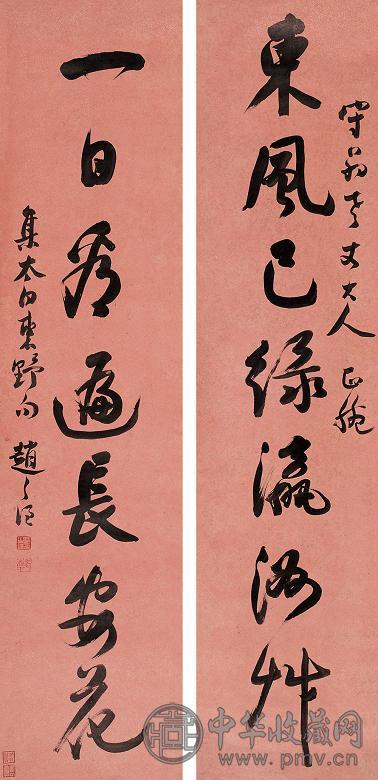 老丈大人正腕
東風已綠瀛洲艸
一日看遍長安花
集太白東野句 趙之謙
中华收藏网
www.pmv.cn